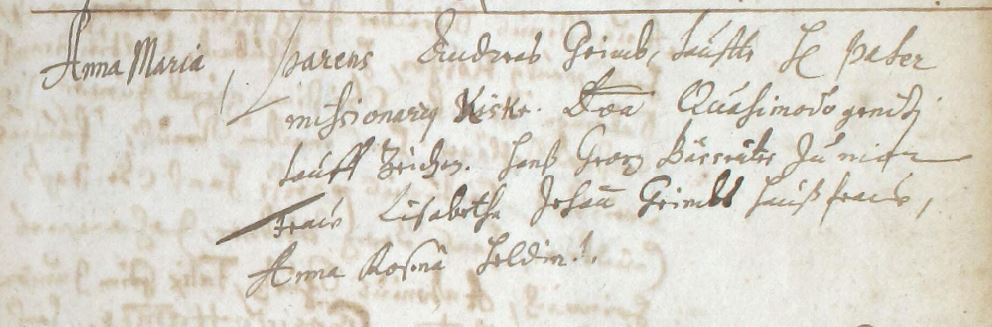 Anna Maria, parens Andreas Grimb, tauffte H. Pater
missionarius Kiske. Dca Quasimodogeniti
tauff Zeichen. Hanß Georg Junior
Fraw Lisabetha Johan Grimbs haußfraw,
Anna Rosina Heldin.